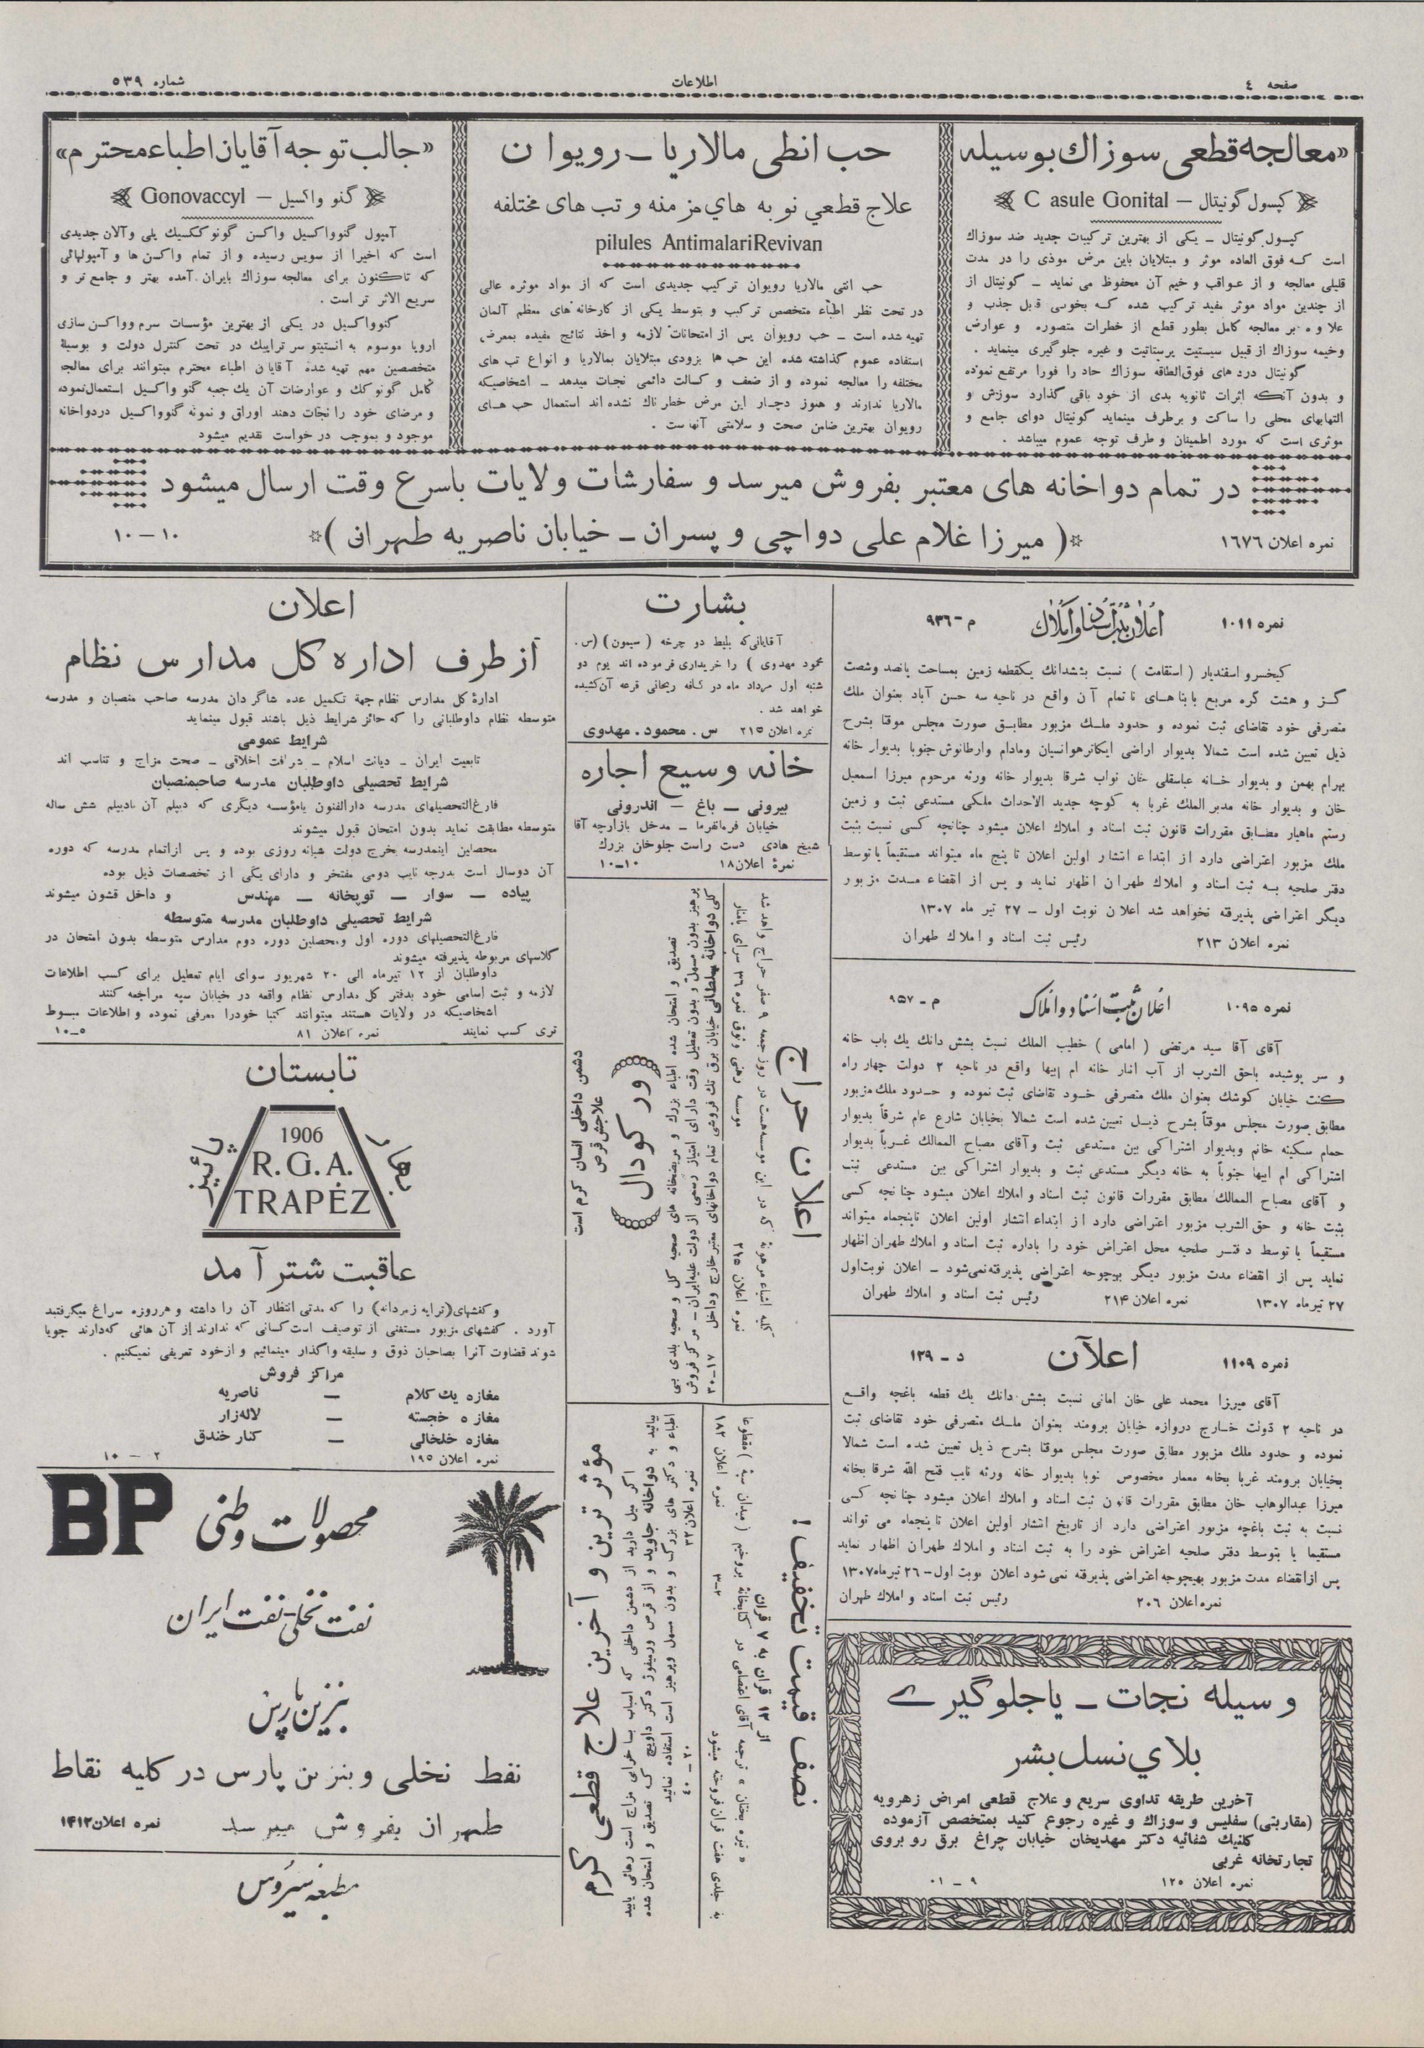 صفحه ٤
اطلاعات
شماره ٥٣٩
«معالجه قطعی سوزاك بوسیله
كپسول گونیتال — C asule Gonital
كپسول گونیتال ـ یکی از بهترین ترکیبات جدید ضد سوزاك
است که فوق العاده موثر و مبتلایان باین مرض موذی را در مدت
قلیلی معالجه و از عواقب و خیم آن محفوظ می نماید ـ گونیتال از
از چندین مواد موثر مفید ترکیب شده که بخوبی قابل جذب و
علاوه بر معالجه کامل بطور قطع از خطرات متصوره و عوارض
وخیمه سوزاك از قبیل سیستیت پرستاتیت و غیره جلوگیری مینماید.
گونیتال درد های فوق‌الطاقه سوزاك حاد را فورا مرتفع نموده
و بدون آنکه اثرات ثانویه بدی از خود باقی گذارد سوزش و
التهابهای محلی را ساکت و برطرف مینماید گونیتال دوای جامع و
موثری است که مورد اطمینان و طرف توجه عموم میباشد .
حب انطی مالاریا ـ رویوان
علاج قطعي نوبه های مزمنه و تب های مختلفه
pilules AntimalariRevivan
حب انتی مالاریا رویوان ترکیب جدیدی است که از مواد موثره عالی
در تحت نظر اطباء متخصص ترکیب و بتوسط یکی از کارخانه های معظم آلمان
تهیه شده است ـ حب رویوان پس از امتحانات لازمه و اخذ نتائج مفیده بمعرض
استفاده عموم گذاشته شده این حب ها بزودی مبتلایان بمالاریا و انواع تب های
مختلفه را معالجه نموده و از ضعف و کسالت دائمی نجات میدهد ـ اشخاصیکه
مالاریا ندارند و هنوز دچار این مرض خطرناك نشده اند استعمال حب های
رویوان بهترین ضامن صحت و سلامتی آنهاست .
«جالب توجه آقایان اطباء محترم»
گنو واکسیل — Gonovaccyl
آمپول گنوواکسیل واکسن گونوککسیك پلی والان جدیدی
است که اخیرا از سویس رسیده و از تمام واکسن ها و آمپولهائی
که تاکنون برای معالجه سوزاك بایران آمده بهتر و جامع تر و
سریع الاثر تر است .
گنوواکسیل در یکی از بهترین مؤسسات سرم وواکسن سازی
اروپا موسوم به انستیتو سرتراپیك در تحت کنترل دولت و بوسیلهٔ
متخصصین مهم تهیه شده آقایان اطباء محترم میتوانند برای معالجهٔ
کامل گونوکك و عوارضات آن یك جعبه گنو واکسیل استعمال‌نموده
و مرضای خود را نجات دهند اوراق و نمونه گنوواکسیل در دواخانه
موجود و بموجب درخواست تقدیم میشود
در تمام دواخانه های معتبر بفروش میرسد و سفارشات ولایات باسرع وقت ارسال میشود
نمره اعلان ١٦٧٦
( میرزا غلام علی دواچی و پسران ـ خیابان ناصریه طهرانی )
١٠ — ١٠
نمره ١٠١١
اعلان ثبت اسناد و املاک
م — ٩٣٦
کیخسرو اسفندیار ( استقامت ) نسبت بششدانك یکقطعه زمین بمساحت پانصد وشصت
گز و هشت گره مربع با بناهای نا تمام آن واقع در ناحیه سه حسن آباد بعنوان ملك
متصرفی خود تقاضای ثبت نموده و حدود ملك مزبور مطابق صورت مجلس موقتا بشرح
ذیل تعیین شده است شمالا بدیوار اراضی ایکانرهوانسیان ومادام وارطانوش جنوبا بدیوار خانه
بهرام بهمن و بدیوار خانه عباسقلی خان نواب شرقا بدیوار خانه ورثه مرحوم میرزا اسمعیل
خان و بدیوار خانه مدبر الملك غربا به کوچه جدید الاحداث ملکی مستدعی ثبت و زمین
رستم ماهیار مطابق مقررات قانون ثبت اسناد و املاك اعلان میشود چنانچه کسی نسبت بثبت
ملك مزبور اعتراضی دارد از ابتداء انتشار اولین اعلان تا پنج ماه میتواند مستقیماً یا توسط
دفتر صلحیه به ثبت اسناد و املاك طهران اظهار نماید و پس از انقضاء مدت مزبور
دیگر اعتراضی پذیرفته نخواهد شد اعلان نوبت اول ـ ٢٧ تیر ماه ١٣٠٧
نمره اعلان ٢١٣
رئیس ثبت اسناد و املاك طهران
نمره ١٠٩٥
اعلان ثبت اسناد و املاک
م — ٩٥٧
آقای آقا سید مرتضی ( امامی ) خطیب الملك نسبت بشش دانك یك باب خانه
و سر پوشیده باحق الشرب از آب انبار خانه ام ابیها واقع در ناحیه ٢ دولت چهار راه
کنت خیابان کوشك بعنوان ملك متصرفی خود تقاضای ثبت نموده و حدود ملك مزبور
مطابق صورت مجلس موقتاً بشرح ذیل تعیین شده است شمالا بخیابان شارع عام شرقاً بدیوار
حمام سکینه خانم وبدیوار اشتراکی بین مستدعی ثبت وآقای مصباح الممالك غرباً بدیوار
اشتراکی ام ابیها جنوباً به خانه دیگر مستدعی ثبت و بدیوار اشتراکی بین مستدعی ثبت
و آقای مصباح الممالك مطابق مقررات قانون ثبت اسناد و املاك اعلان میشود چنانچه کسی
بثبت خانه و حق الشرب مزبور اعتراضی دارد از ابتداء انتشار اولین اعلان تاپنجماه میتواند
مستقیماً یا توسط دفتر صلحیه محل اعتراض خود را باداره ثبت اسناد و املاك طهران اظهار
نماید پس از انقضاء مدت مزبور دیگر بهیچوجه اعتراضی پذیرفته نمی‌شود ـ اعلان نوبت اول
٢٧ تیرماه ١٣٠٧
نمره اعلان ٢١٤
رئیس ثبت اسناد و املاك طهران
نمره ١١٠٩
اعلان
د — ١٢٩
آقای میرزا محمد علی خان امانی نسبت بشش دانك یك قطعه باغچه واقع
در ناحیه ٢ دولت خارج دروازه خیابان برومند بعنوان ملك متصرفی خود تقاضای ثبت
نموده و حدود ملك مزبور مطابق صورت مجلس موقتا بشرح ذیل تعیین شده است شمالا
بخیابان برومند غربا بخانه معمار مخصوص نوبا بدیوار خانه ورثه نایب فتح الله شرقا بخانه
میرزا عبدالوهاب خان مطابق مقررات قانون ثبت اسناد و املاك اعلان میشود چنانچه کسی
نسبت به ثبت باغچه مزبور اعتراضی دارد از تاریخ انتشار اولین اعلان تا پنجماه می تواند
مستقیما یا بتوسط دفتر صلحیه اعتراض خود را به ثبت اسناد و املاك طهران اظهار نماید
پس از انقضاء مدت مزبور بهیچوجه اعتراضی پذیرفته نمی شود اعلان نوبت اول ـ ٢٦ تیرماه ١٣٠٧
نمره اعلان ٢٠٦
رئیس ثبت اسناد و املاك طهران
وسیله نجات ـ یا جلوگیری
بلای نسل بشر
آخرین طریقه تداوی سریع و علاج قطعی امراض زهرویه
(مقاربتی) سفلیس و سوزاك و غیره رجوع کنید بمتخصص آزموده
کلنیك شفائیه دکتر مهدیخان خیابان چراغ برق رو بروی
تجارتخانه غربی
نمره اعلان ١٢٥
٩ — ٠١
بشارت
آقایانی‌که بلیط دو چرخه ( سیمون ) (س .
محمود مهدوی ) را خریداری فرموده اند یوم دو
شنبه اول مرداد ماه در کافه ریحانی قرعه آن کشیده
خواهد شد .
نمره اعلان ٢١٥
س . محمود . مهدوی
خانه وسیع اجاره
بیرونی — باغ — اندرونی
خیابان فرمانفرما — مدخل بازارچه آقا
شیخ هادی دست راست جلوخان بزرك
نمرهٔ اعلان ١٨
١٠—١٠
اعلان حراج
کلیه اشیاء مرهونهٔ که در این موسسه هست در روز جمعه ٩ صفر حراج واهد شد
موسسه رهنی وثوق نمره ٣٦ سرای پامنار
نمره اعلان ٢١٥
دشمن داخلی انسان کرم است
علاجش قرص
ورکودال
تصدیق و امتحان شده اطباء بزرك و مریضخانه های صحیه کل و صحیه بلدی بی
پرهیز بدون مسهل و بدون تعطیل وقت دارای امتیاز رسمی از دولت علیه ایران ـ مرکز فروش
کلی دواخانهٔ سلطانی خیابان برق تك فروشی تمام دواخانهای معتبر خارج وداخل
١٧—٣٠
نصف قیمت تخفیف !
از ١٣ قران به ٧ قران
« تیره بختان » ترجمه آقای اعتصامی در کتابخانهٔ بروخیم ( میدان سپه ) مقطوعا
به جلدی هفت قران فروخته میشود
٢—٣
نمره اعلان ١٨٢
مؤثر ترین و آخرین علاج قطعی کرم
اگر میل دارید از دشمن داخلی که اسباب بدا خرابی مزاج است رهائی یابید
بیائید به دواخانه جاوید و از قرص ورمیفوژ دکتر داویچ که تصدیق و امتحان شده
اطباء و دکتر های بزرك و بدون مسهل وپرهیز است استفاده نمائید
نمره اعلان ٣٢
٢٠ — ٤٠
اعلان
از طرف اداره کل مدارس نظام
ادارهٔ کل مدارس نظام جهة تکمیل عده شاگردان مدرسه صاحب منصبان و مدرسه
متوسطه نظام داوطلبانی را که حائز شرایط ذیل باشند قبول مینماید
شرایط عمومی
تابعیت ایران — دیانت اسلام — شرافت اخلاقی — صحت مزاج و تناسب اند
شرایط تحصیلی داوطلبان مدرسه صاحبمنصبان
فارغ‌التحصیلهای مدرسه دارالفنون یا مؤسسه دیگری که دیپلم آن بادیپلم شش ساله
متوسطه مطابقت نماید بدون امتحان قبول میشوند
محصلین اینمدرسه بخرج دولت شبانه روزی بوده و پس ازاتمام مدرسه که دوره
آن دوسال است بدرجه نایب دومی مفتخر و دارای یکی از تخصصات ذیل بوده
پیاده — سوار — توپخانه — مهندس و داخل قشون میشوند
شرایط تحصیلی داوطلبان مدرسه متوسطه
فارغ‌التحصیلهای دوره اول ومحصلین دوره دوم مدارس متوسطه بدون امتحان در
کلاسهای مربوطه پذیرفته میشوند
داوطلبان از ١٢ تیرماه الی ٢٠ شهریور سوای ایام تعطیل برای کسب اطلاعات
لازمه و ثبت اسامی خود بدفتر کل مدارس نظام واقعه در خیابان سپه مراجعه کنند
اشخاصیکه در ولایات هستند میتوانند کتبا خودرا معرفی نموده و اطلاعات مبسوط
تری کسب نمایند
نمره اعلان ٨١
٥—١٠
تابستان
پائیز
1906
R.G.A.
TRAPĖZ
بهار
عاقبت شتر آمد
و کفشهای (تراپه زمردانه) را که مدتی انتظار آن را داشته و هرروزه سراغ میگرفتید
آورد . کفشهای مزبور مستغنی از توصیف است کسانی که ندارند از آن هائی که‌دارند جویا
شوند قضاوت آنرا بصاحبان ذوق و سلیقه واگذار مینمائیم و ازخود تعریفی نمیکنیم .
مراکز فروش
مغازه یك کلام — ناصریه
مغازه خجسته — لاله‌زار
مغازه خلخالی — کنار خندق
نمره اعلان ١٩٥
٢ — ١٠
BP
محصولات وطنی
نفت نخلی - نفت ایران
بنزین پارس
نفط نخلی و بنزین پارس در کلیه نقاط
طهران بفروش میرسد
نمره اعلان ١٤١٢
مطبعه سیروس